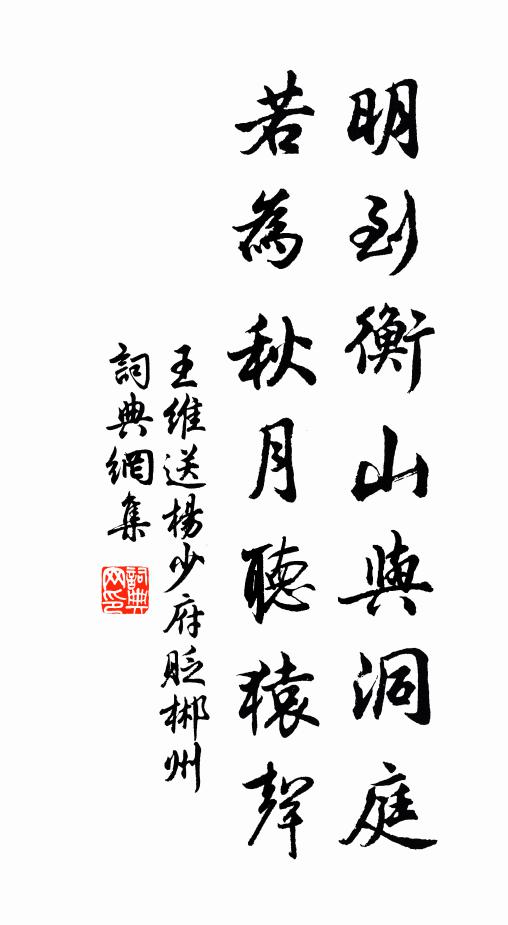 明到衡山與洞庭
若為秋月聽猿聲
王維送楊少府貶郴州
詞典網集
詞典網印